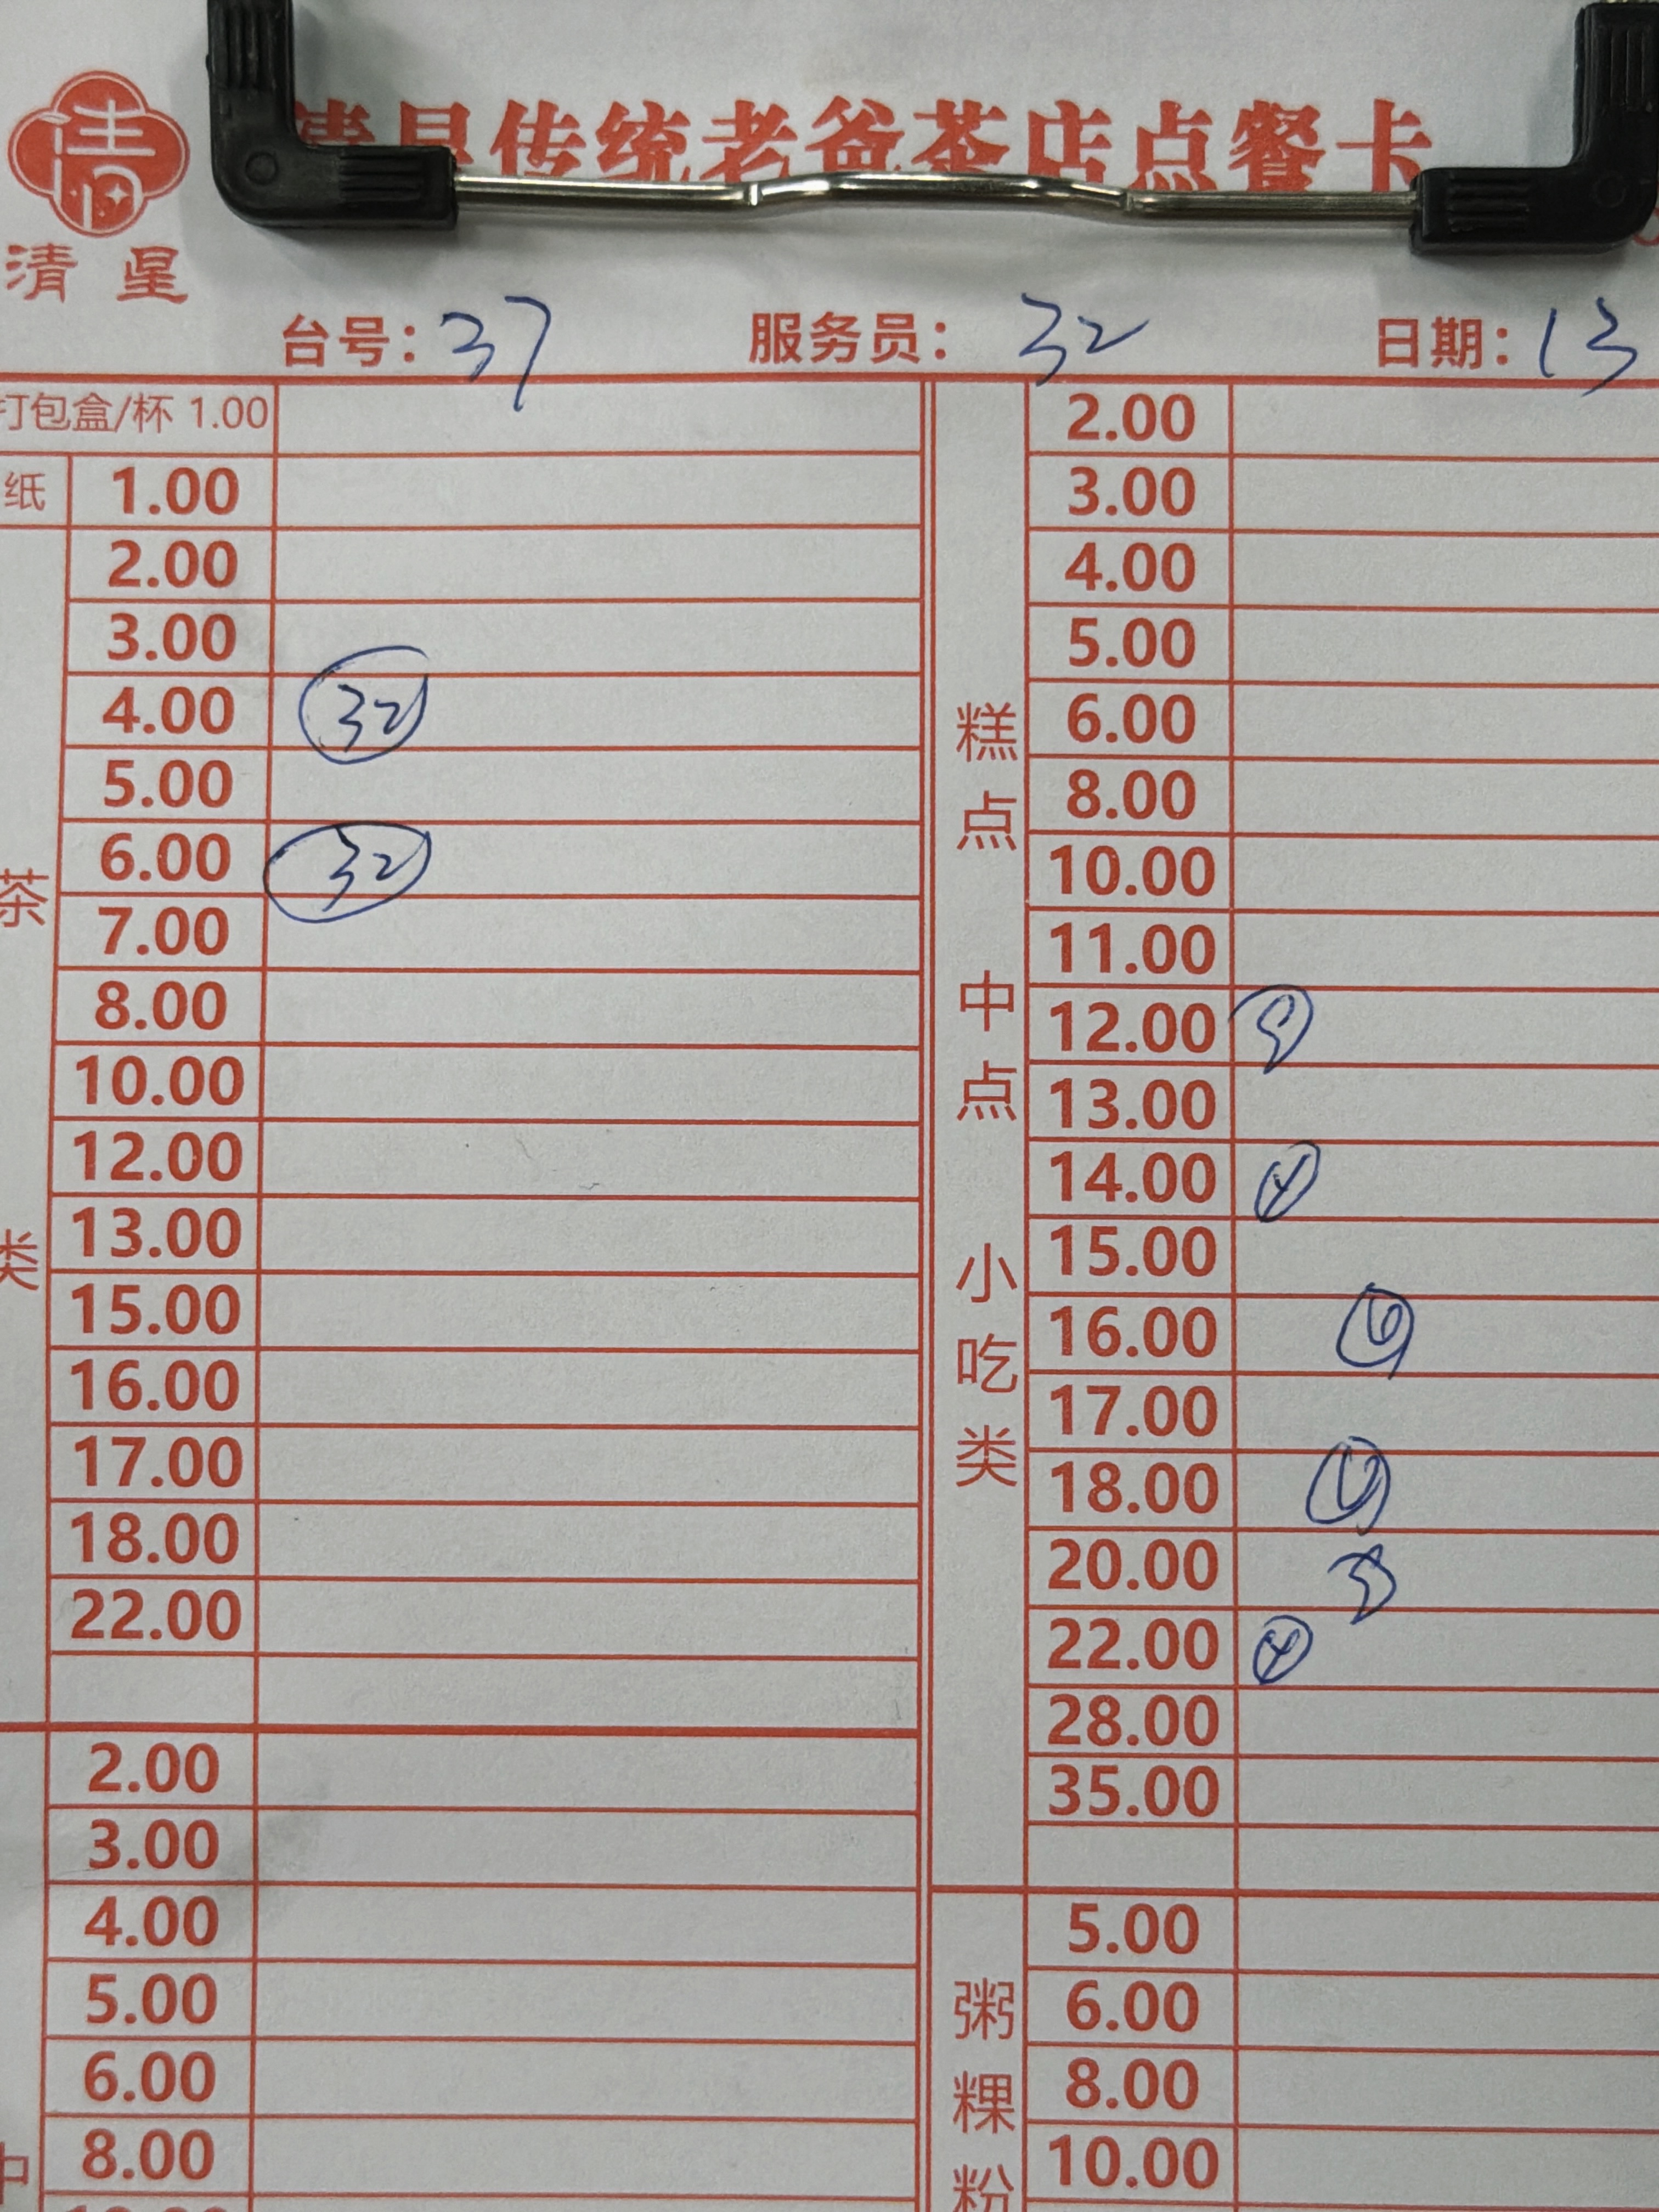 清星传统老爸茶店点餐卡
清星
台号：37 服务员：32 日期：13
打包盒/杯 1.00
纸 1.00
茶类
2.00
3.00
4.00 32
5.00
6.00 32
7.00
8.00
10.00
12.00
13.00
15.00
16.00
17.00
18.00
22.00
2.00
3.00
4.00
5.00
6.00
8.00
糕点 中点 小吃类
2.00
3.00
4.00
5.00
6.00
8.00
10.00
11.00
12.00
13.00
14.00
15.00
16.00
17.00
18.00
20.00
22.00
28.00
35.00
粥粿粉
5.00
6.00
8.00
10.00